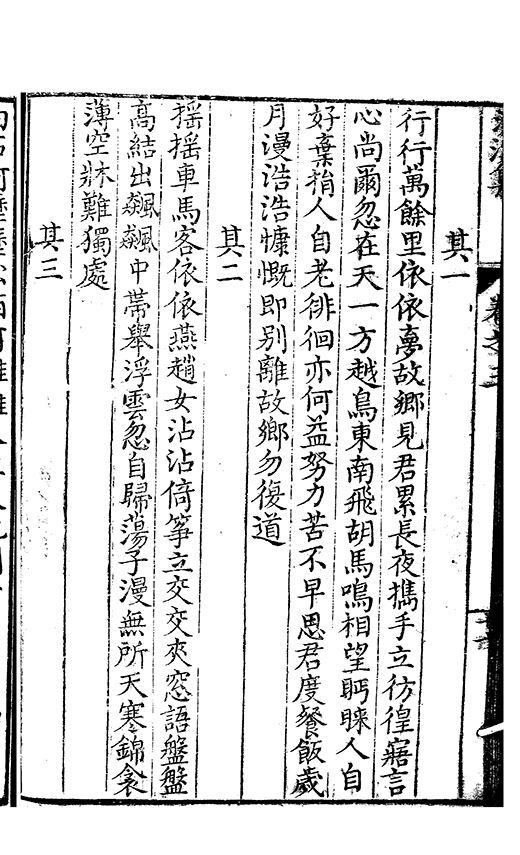 其一
行行萬餘里依依夢故鄉見君累長夜攜手立彷徨寤言
心尚爾忽在天一方越鳥東南飛胡馬鳴相望眄睞人自
好棄捐人自老徘徊亦何益努力苦不早思君度餐飯歲
月漫浩浩慷慨即别離故鄉勿復道
其二
搖搖車馬客依依燕趙女沾沾倚箏立交交夾窓語盤盤
高結出飆飆中帶舉浮雲忽自歸蕩子漫無所天寒錦衾
薄空牀難獨處
其三